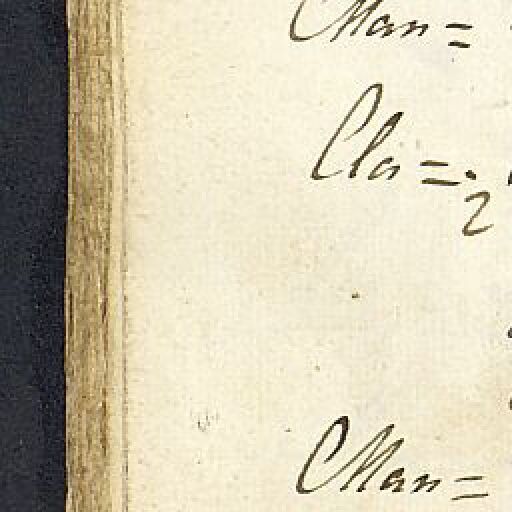 Man=
Cla=
2
Man=